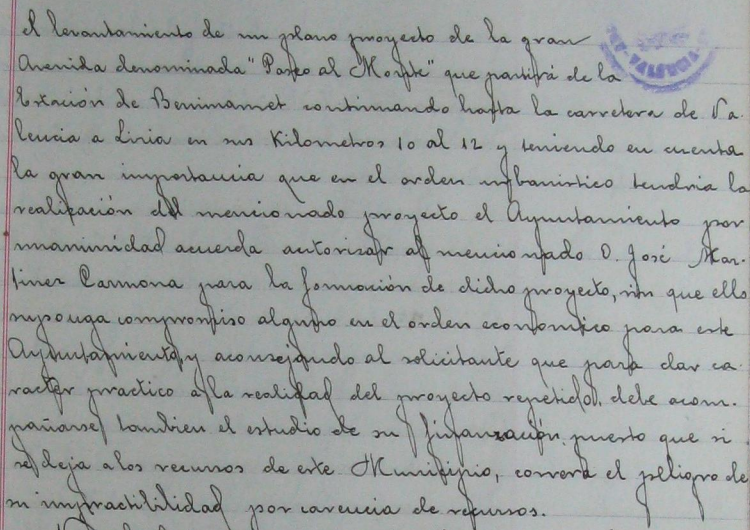 el levantamiento de un plano proyecto de la gran
Avenida denominada "Paseo al Monte" que partirá de la
Estación de Benimamet continuando hasta la carretera de Va-
lencia a Liria en sus Kilometros 10 al 12 y teniendo en cuenta
la gran importancia que en el orden urbanistico tendria la
realización del mencionado proyecto el Ayuntamiento por
unanimidad acuerda autorizar al mencionado D. José Mar-
tinez Carmona para la formación de dicho proyecto, sin que ello
suponga compromiso alguno en el orden economico para este
Ayuntamiento, y aconsejando al solicitante que para dar ca-
racter practico a la realidad del proyecto repetido, debe acom-
pañarse tambien el estudio de su finanzación, puesto que si
se deja a los recursos de este Municipio, correrá el peligro de
su impractibilidad por carencia de recursos.